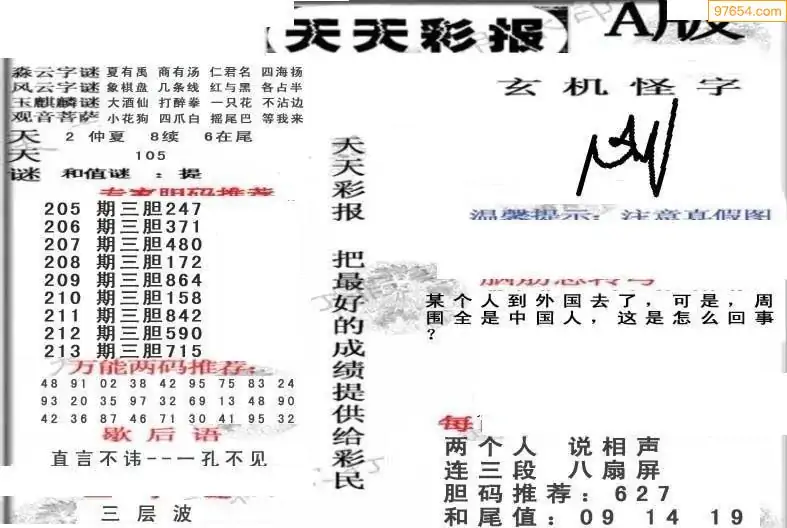 97654.com
【天天彩报】
A版
森云字谜 夏有禹 商有汤 仁君名 四海扬
风云字谜 象棋盘 几条线 红与黑 各占半
玉麒麟谜 大酒仙 打醉拳 一只花 不沾边
观音菩萨 小花狗 四爪白 摇尾巴 等我来
天 2 仲夏 8续 6在尾
天 105
谜 和值谜 : 提
专家胆码推荐
205 期三胆247
206 期三胆371
207 期三胆480
208 期三胆172
209 期三胆864
210 期三胆158
211 期三胆842
212 期三胆590
213 期三胆715
万能两码推荐:
48 91 02 38 42 95 75 83 24
93 20 35 97 32 69 13 48 90
42 36 87 46 71 30 41 95 32
歇后语
直言不讳--一孔不见
三层波
天天彩报 把最好的成绩提供给彩民
玄机怪字
温馨提示: 注意真假图
脑筋急转弯
某个人到外国去了,可是,周
围全是中国人,这是怎么回事
?
每
两个人 说相声
连三段 八扇屏
胆码推荐:627
和尾值:09 14 19